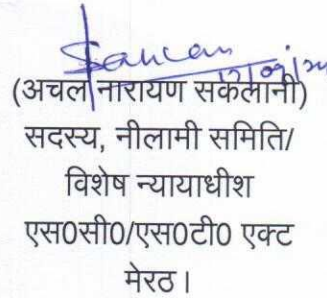 (अचल नारायण सकलानी)
सदस्य, नीलामी समिति/
विशेष न्यायाधीश
एस0सी0/एस0टी0 एक्ट
मेरठ।